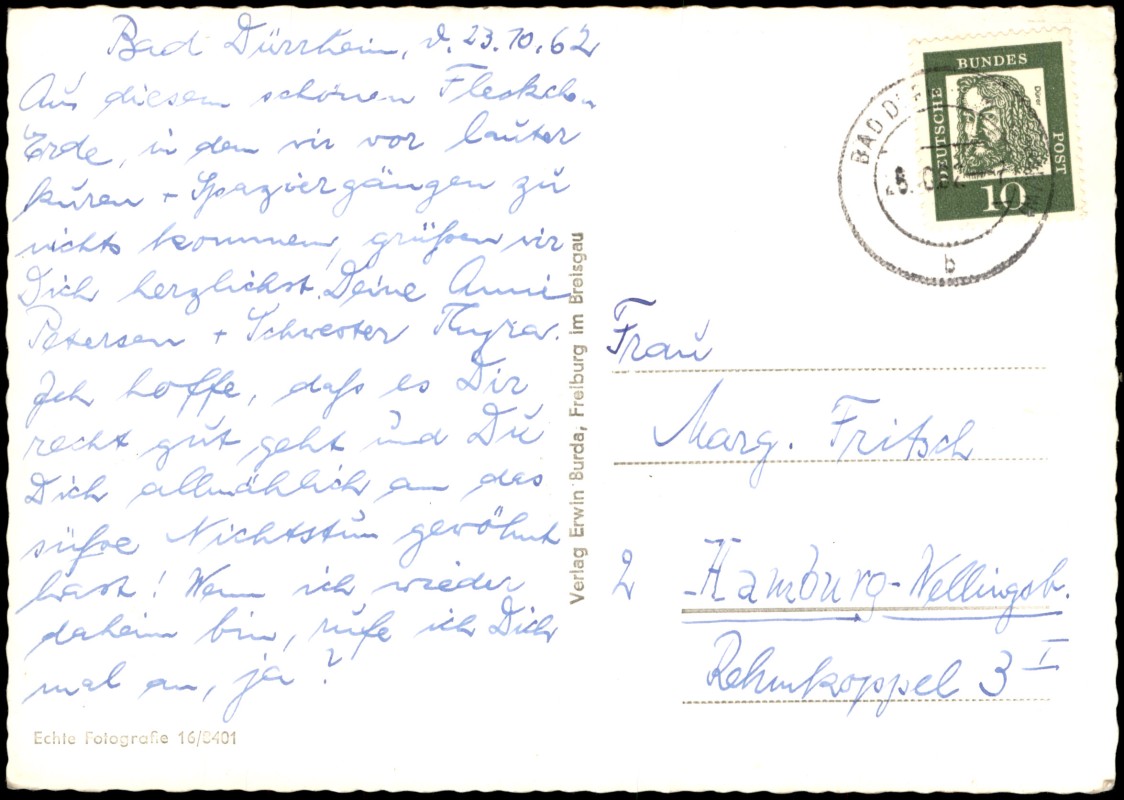 Bad Dürrheim, d. 23.10.62
Aus diesem schönen Fleckchen
Erde, in dem wir vor lauter
kuren + Spaziergängen zu
nichts kommen, grüßen wir
Dich herzlichst. Deine Anni
Petersen + Schwester Thyra.
Ich hoffe, daß es Dir
recht gut geht und Du
Dich allmählich an das
süße Nichtstun gewöhnt
hast! Wenn ich wieder
daheim bin, rufe ich Dich
mal an, ja?
Echte Fotografie 16/8401
Verlag Erwin Burda, Freiburg im Breisgau
DEUTSCHE
BUNDES
POST
Dürer
10
BAD DÜ
b
Frau
Marg. Fritsch
2 Hamburg-Wellingsb.
Rehmkoppel 3 I